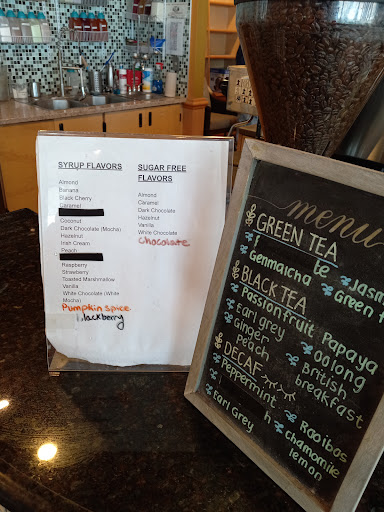 SYRUP FLAVORS
Almond
Banana
Black Cherry
Caramel
Coconut
Dark Chocolate (Mocha)
Hazelnut
Irish Cream
Peach
Raspberry
Strawberry
Toasted Marshmallow
Vanilla
White Chocolate (White
Mocha)
Pumpkin spice
blackberry
SUGAR FREE
FLAVORS
Almond
Caramel
Dark Chocolate
Hazelnut
Vanilla
White Chocolate
Chocolate
menu
GREEN TEA
Jasm
Genmaicha
Green t
BLACK TEA
Passionfruit Papaya
Earl grey
Oolong
Ginger
peach
British
breakfast
DECAF
Peppermint
Rooibos
Earl Grey
chamomile
lemon